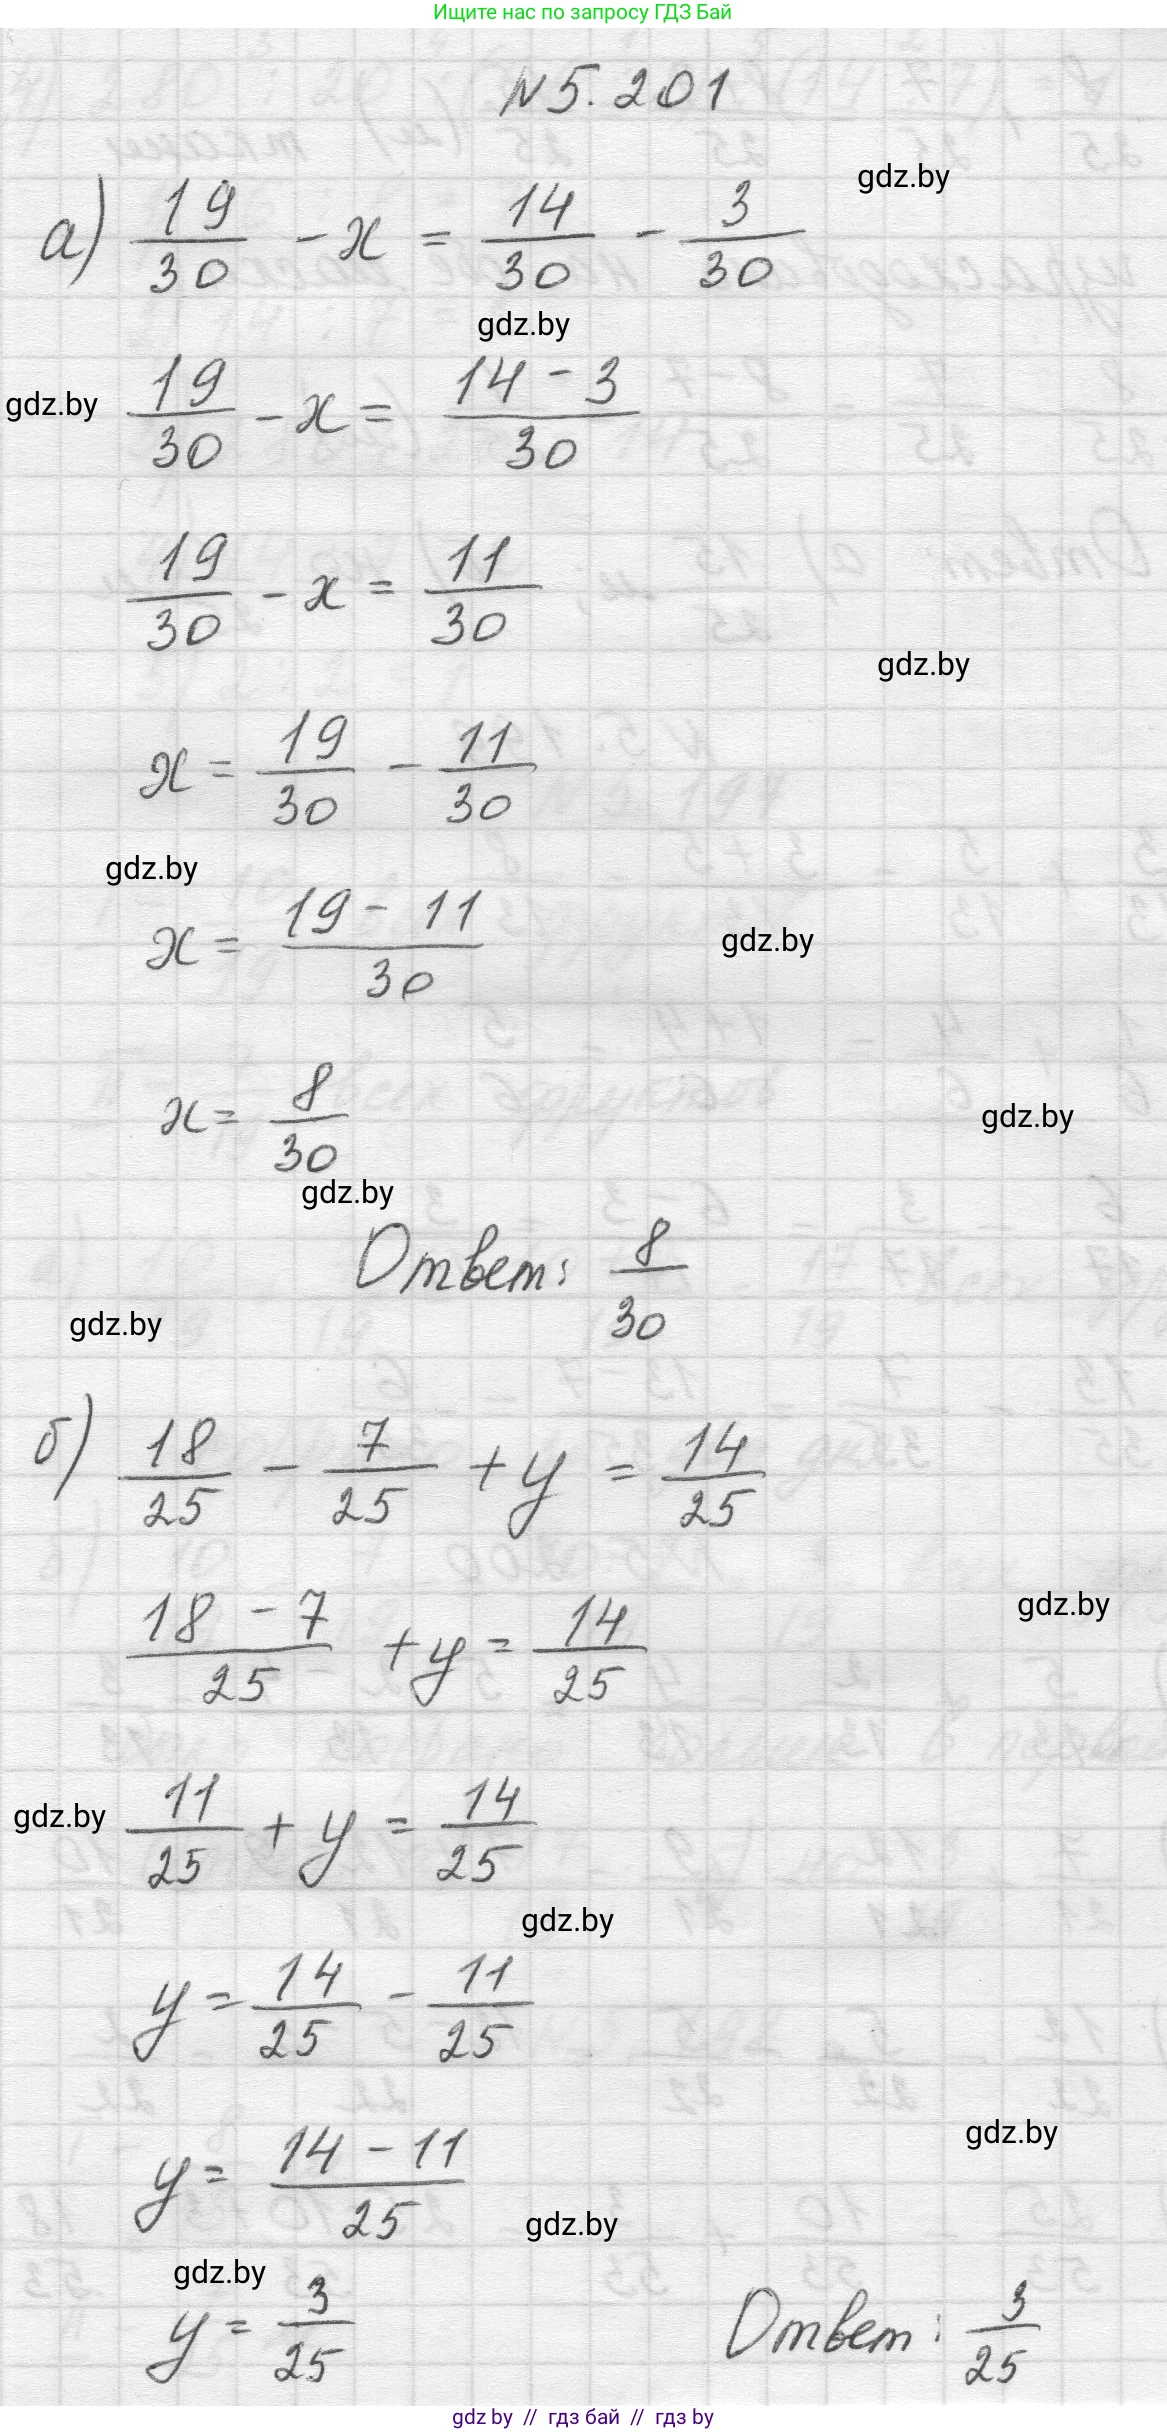 Ищите нас по запросу ГДЗ Бай
N 5. 201
gdz.by
а) 19/30 - x = 14/30 - 3/30
gdz.by
gdz.by
19/30 - x = (14 - 3)/30
19/30 - x = 11/30
gdz.by
x = 19/30 - 11/30
gdz.by
x = (19 - 11)/30
gdz.by
x = 8/30
gdz.by
gdz.by
Ответ: 8/30
gdz.by
б) 18/25 - 7/25 + y = 14/25
gdz.by
(18 - 7)/25 + y = 14/25
gdz.by
11/25 + y = 14/25
gdz.by
y = 14/25 - 11/25
gdz.by
y = (14 - 11)/25
gdz.by
gdz.by
y = 3/25
Ответ: 3/25
gdz by // гдз бай // гдз by